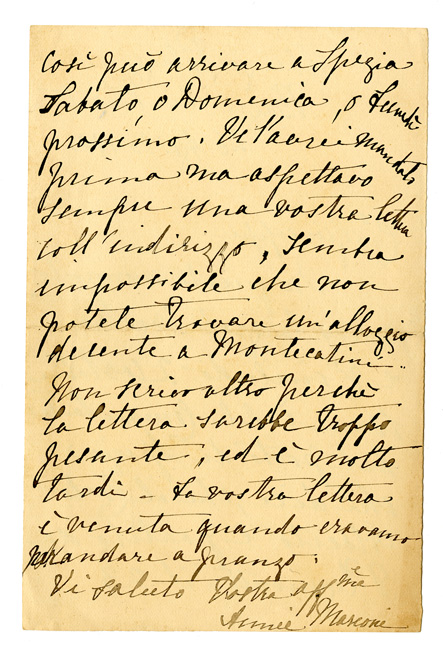 così può arrivare a Spezia
Sabato o Domenica, o Lunedì
prossimo. Ve l'avrei mandato
prima ma aspettavo
sempre una vostra lettera
coll'indirizzo, sembra
impossibile che non
potete trovare un'alloggio
decente a Montecatini.
Non scrivo altro perchè
la lettera sarebbe troppo
pesante, ed è molto
tardi - La vostra lettera
è venuta quando eravamo
andare a pranzo.
Vi saluto Vostra aff.me
Annie Marconi